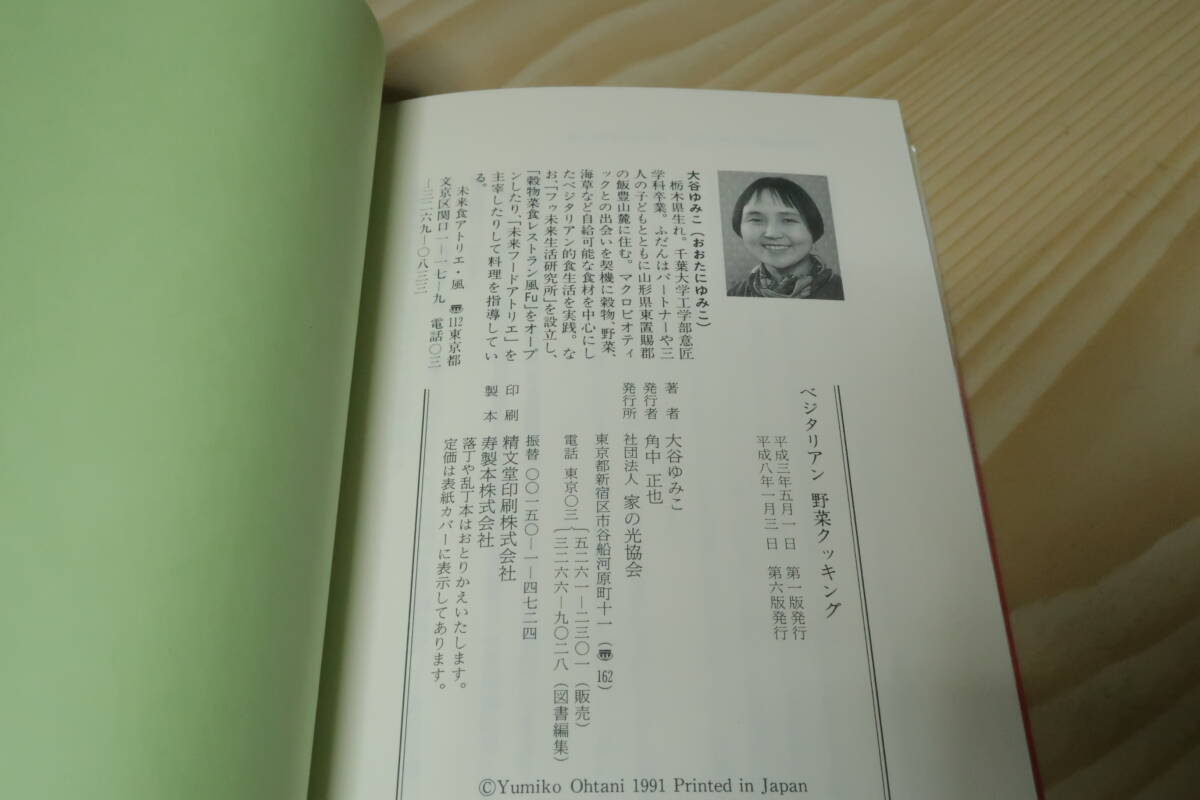 大谷ゆみこ（おおたにゆみこ）
栃木県生れ。千葉大学工学部意匠
学科卒業。ふだんはパートナーや三
人の子どもとともに山形県東置賜郡
の飯豊山麓に住む。マクロビオティ
ックとの出会いを契機に穀物、野菜、
海草など自給可能な食材を中心にし
たベジタリアン的食生活を実践。な
お、「フゥ未来生活研究所」を設立し、
「穀物菜食レストラン風Fu」をオープ
ンしたり、「未来フードアトリエ」を
主宰したりして料理を指導してい
る。
未来食アトリエ・風 〠112東京都
文京区関口一―一七―九 電話〇三
―三二六九―〇八三三
ベジタリアン 野菜クッキング
平成三年五月一日 第一版発行
平成八年一月三一日 第六版発行
著者 大谷ゆみこ
発行者 角中 正也
発行所 社団法人 家の光協会
東京都新宿区市谷船河原町十一（〠162）
電話 東京〇三 五二六一―二三〇一（販売）
三二六六―九〇二八（図書編集）
振替 〇〇一五〇―一―四七二四
印刷 精文堂印刷株式会社
製本 寿製本株式会社
落丁や乱丁本はおとりかえいたします。
定価は表紙カバーに表示してあります。
©Yumiko Ohtani 1991 Printed in Japan